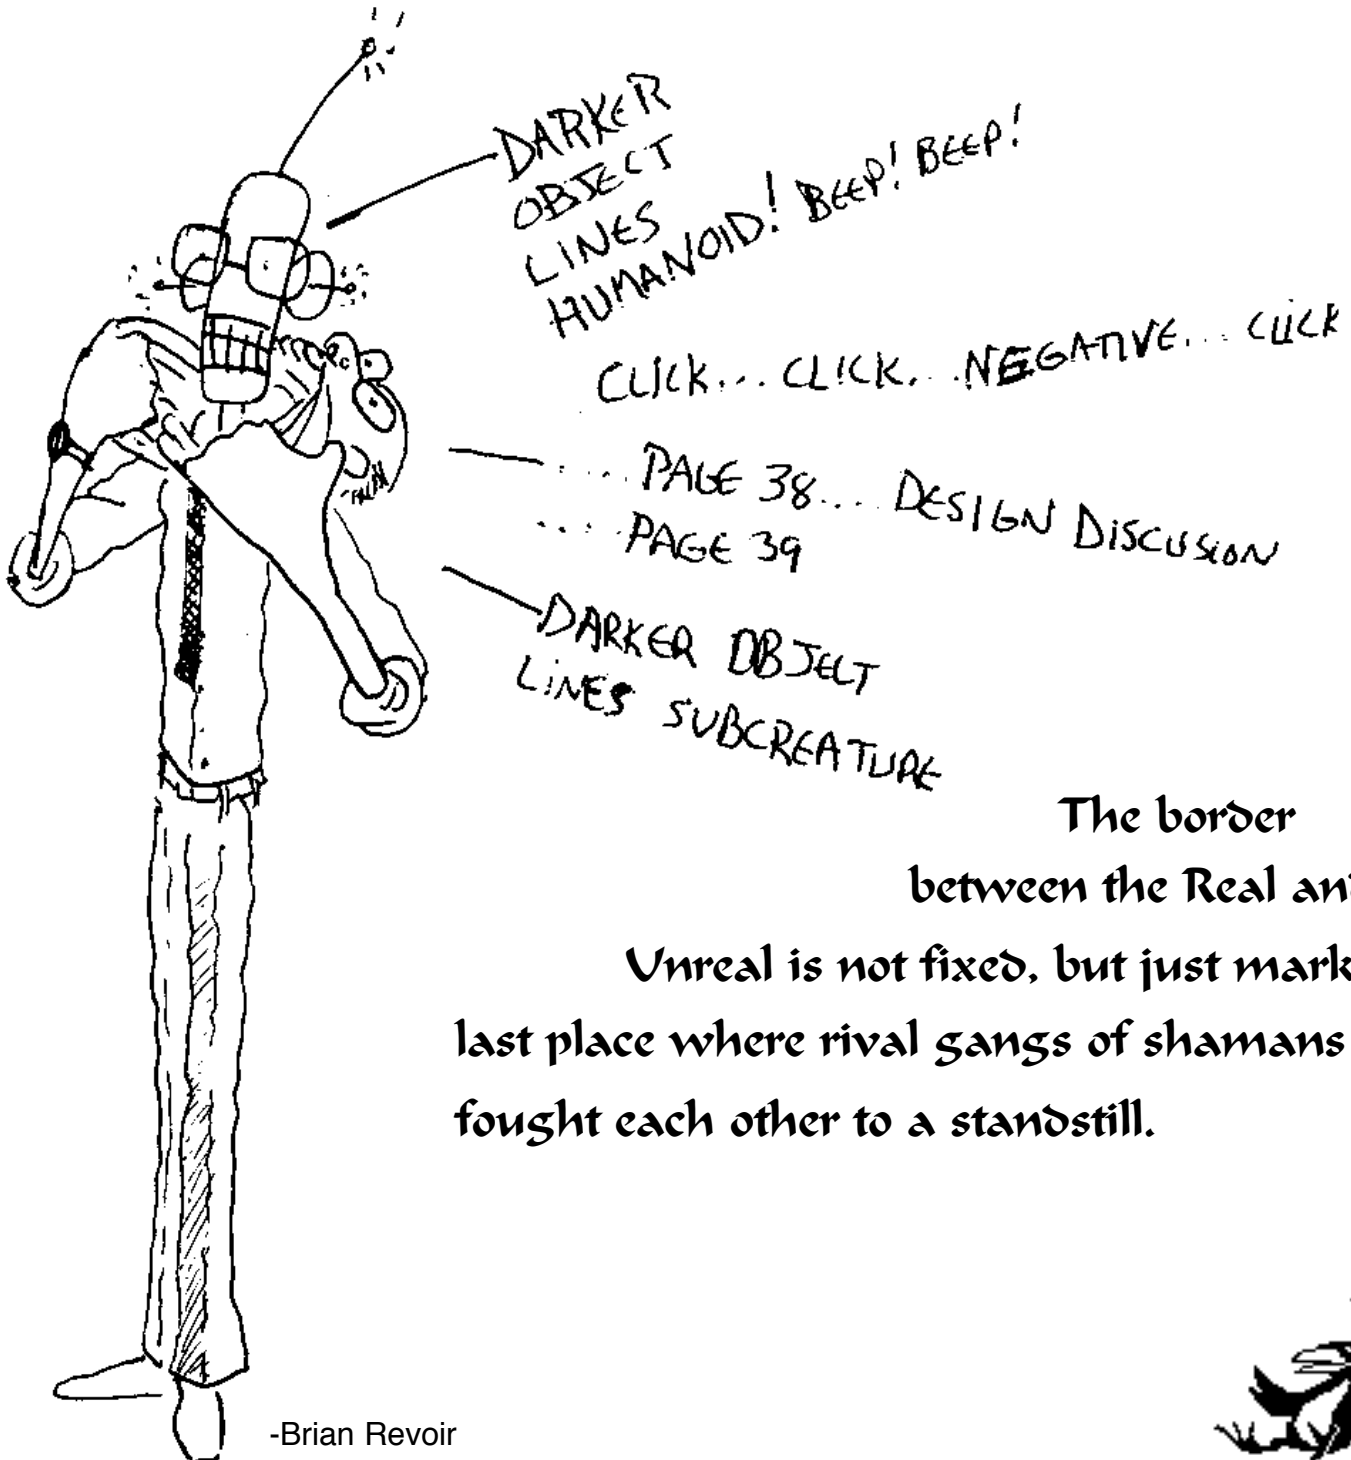 DARKER
OBJECT
LINES
HUMANOID! BEEP! BEEP!
CLICK... CLICK... NEGATIVE... CLICK
.... PAGE 38.... DESIGN DISCUSION
.... PAGE 39
DARKER OBJECT
LINES SUBCREATURE
The border
between the Real an
Unreal is not fixed, but just mark
last place where rival gangs of shamans
fought each other to a standstill.
-Brian Revoir